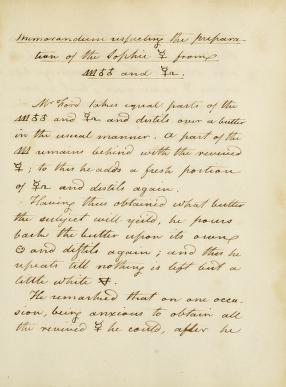 Memorandum respecting the prepara-
tion of the Sophic ☿ from
and
Mr Ford takes equal parts of the
and and distils over a butter
in the usual manner. A part of the
remains behind with the revived
☿; to this he adds a fresh portion
of and distils again.
Having thus obtained what butter
the subject will yield, he pours
back the butter upon its own
and distils again; and thus he
repeats till nothing is left but a
little white
He remarked that on one occa-
sion, being anxious to obtain all
the revived ☿ he could, after he